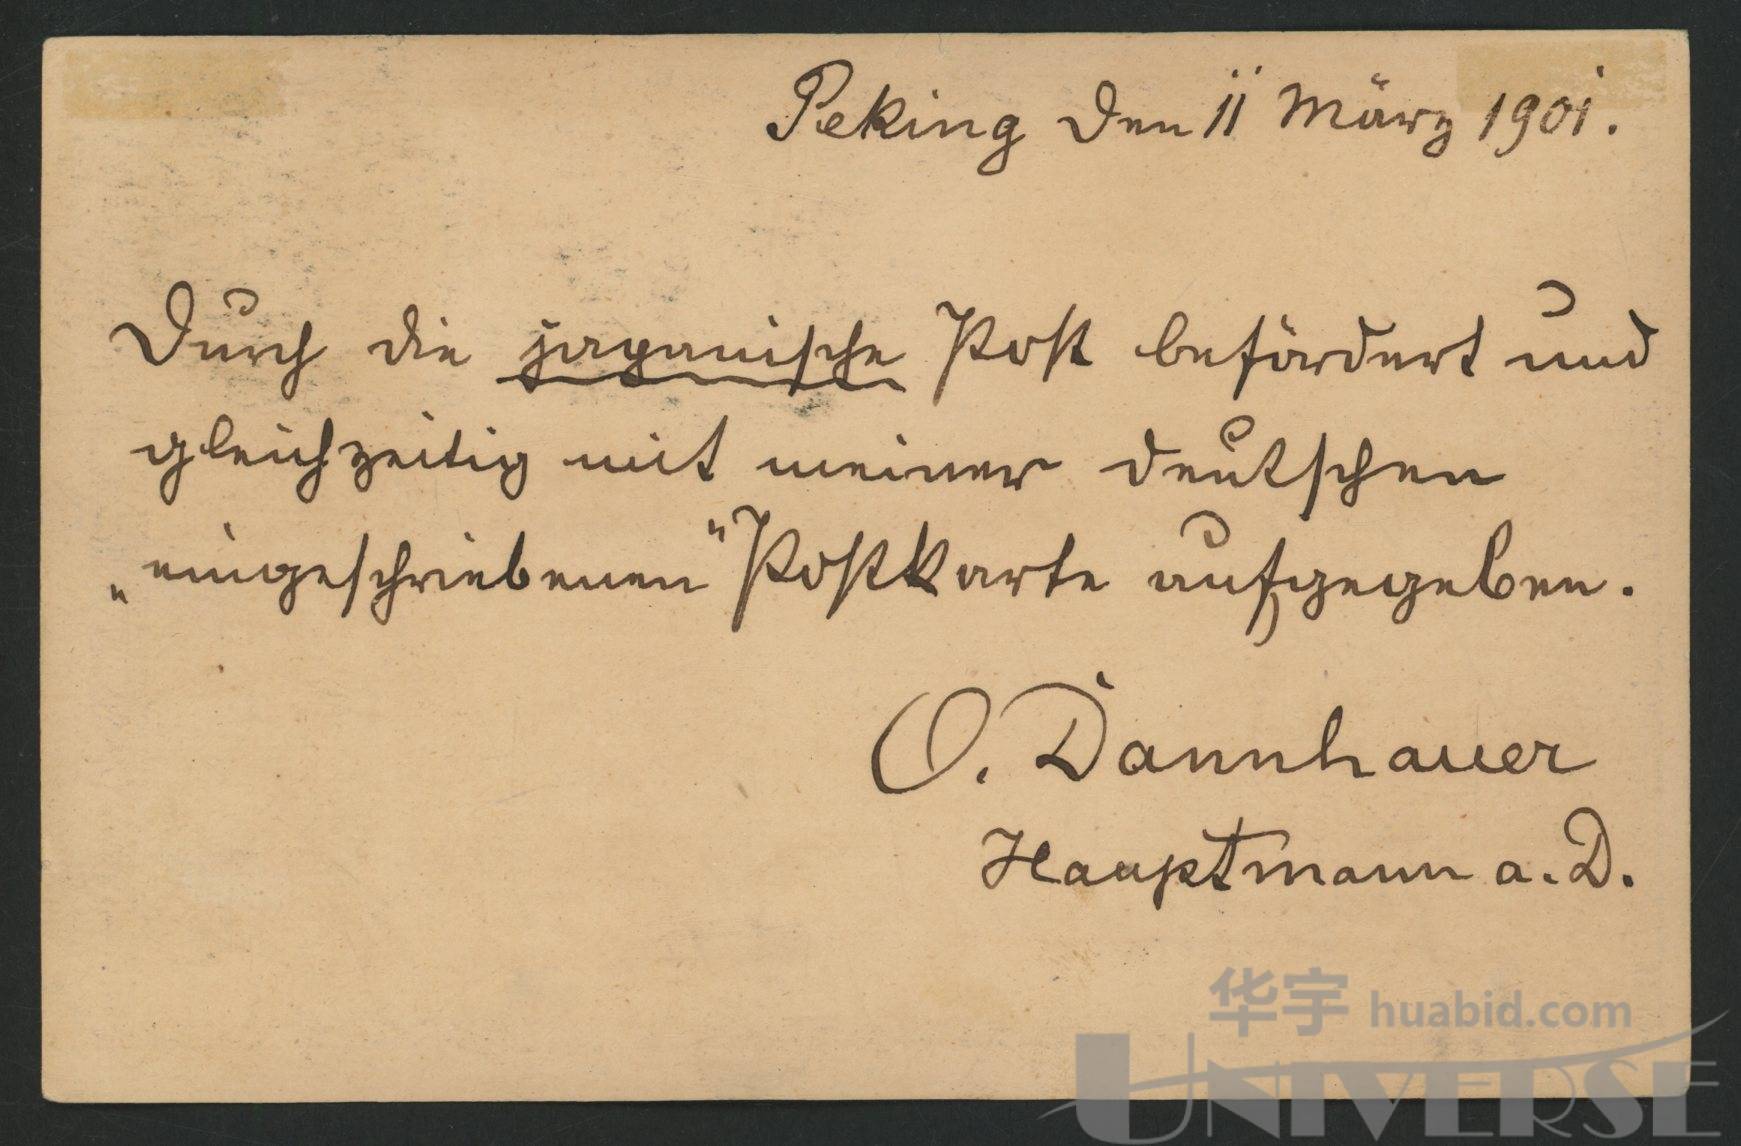 Peking den 11 März 1901.
Durch die japanische Post befördert und
gleichzeitig mit meiner deutschen
„eingeschriebenen" Postkarte aufgegeben.
O. Dannhauer
Hauptmann a. D.
华宇 huabid.com
UNIVERSE